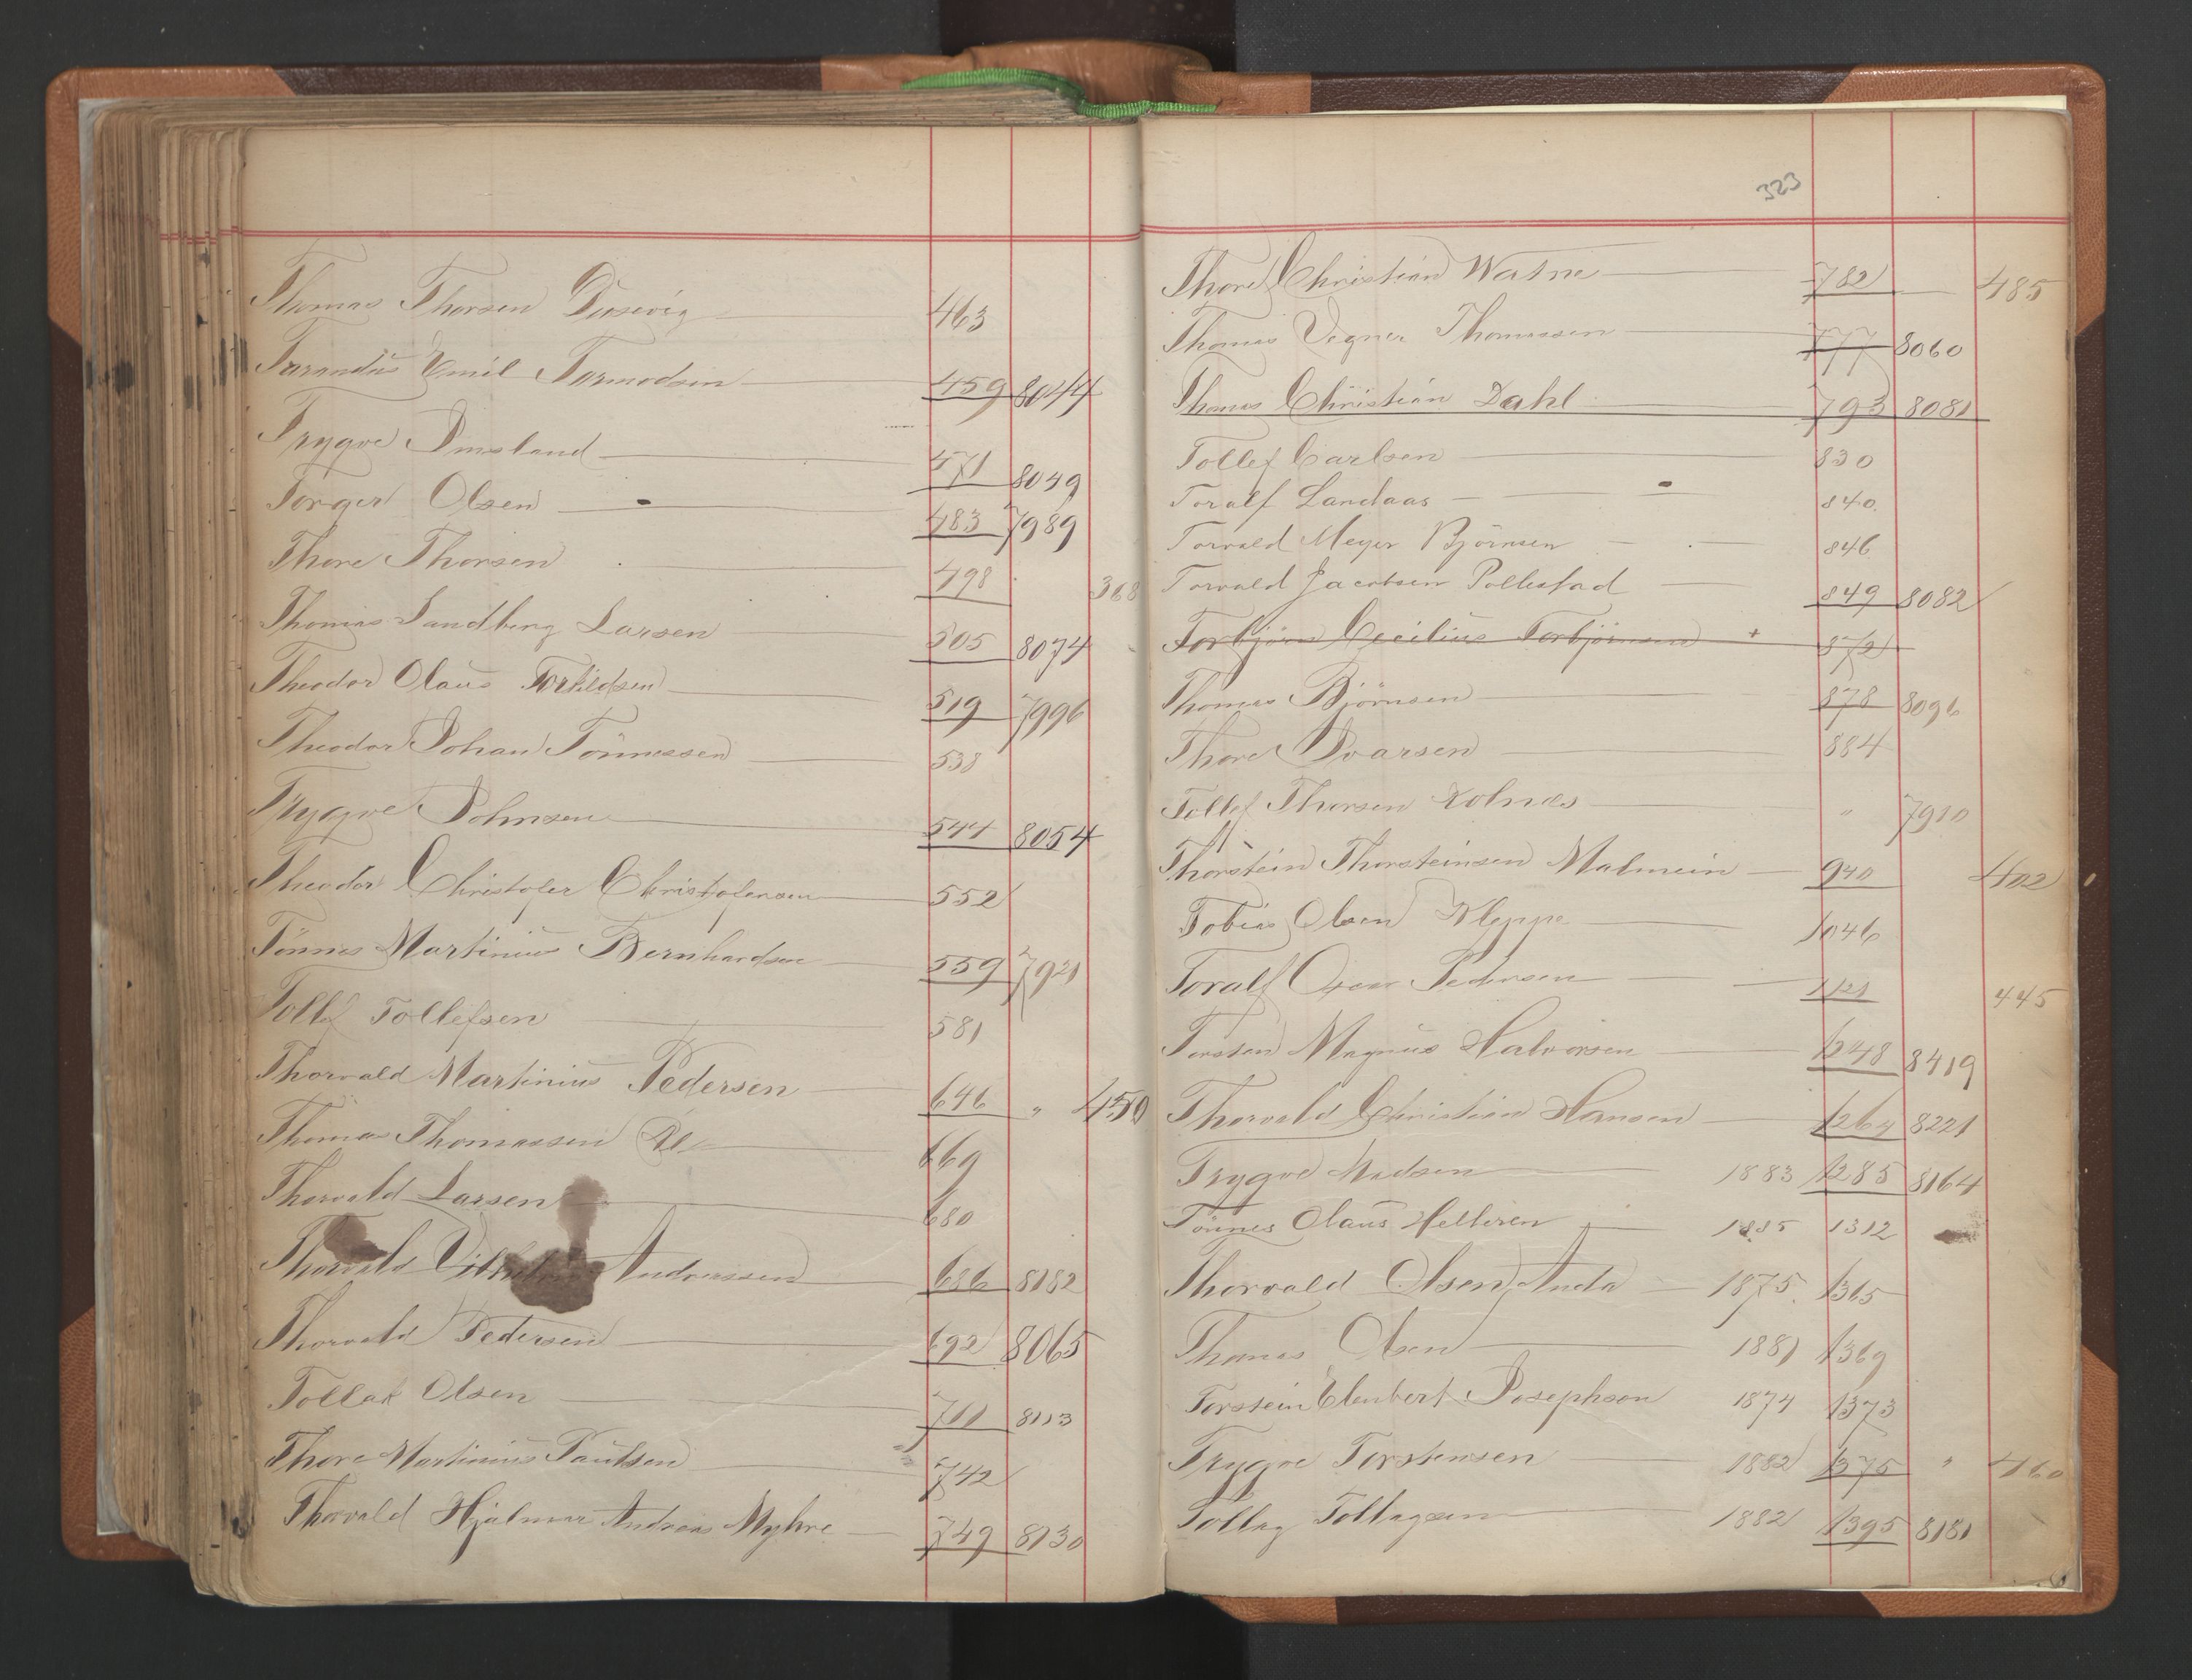 Thomas Thorsen Dusevig 463
Tarandus Emil Tormodsen 459 8044
Trygve Imsland 471 8049
Torger Olsen 483 7989
Thore Thorsen 498 368
Thomas Sandberg Larsen 505 8074
Theodor Olaus Torkildsen 519 7996
Theodor Johan Tönnessen 538
Trygve Johnsen 544 8054
Theodor Christofer Christofersen 552
Tönnes Martinius Bernhardsen 559 7921
Tollef Tollefsen 581
Thorvald Martinius Pedersen 646 " 450
Thomas Thomassen 669
Thorvald Larsen 680
Thorvald Vilhelm Andreassen 686 8182
Thorvald Pedersen 692 8065
Tollak Olsen 711 8113
Thore Martinius Paulsen 742
Thorvald Hjalmar Andreas Myhre 749 8130
323
Thore Christian Watne 782 485
Thomas Vegner Thomassen 777 8060
Thomas Christian Dahl 793 8081
Tollef Carlsen 830
Toralf Landaas 840
Torvald Meyer Björnsen 846
Torvald Jacobsen Pollestad 849 8082
Torbjörn Cecilius Torbjörnsen + 872
Thomas Björnsen 878 8096
Thore Ivarsen 884
Tollef Thorsen Kolnes " 7910
Thorstein Thorsteinsen Malmein 940 402
Tobias Olsen Kleppe 1046
Toralf Pedersen 1121 445
Torsten Magnus Halvorsen 1248 8419
Thorvald Christian Hansen 1264 8221
Trygve Madsen 1883 1285 8164
Tönnes Olaus Helleren 1885 1312
Thorvald Olsen Anda 1875 1365
Thomas Olsen 1881 1369
Torstein Elenbert Josephson 1874 1373
Trygve Torstensen 1882 1375 " 460
Tollag Tollagsen 1882 1395 8181